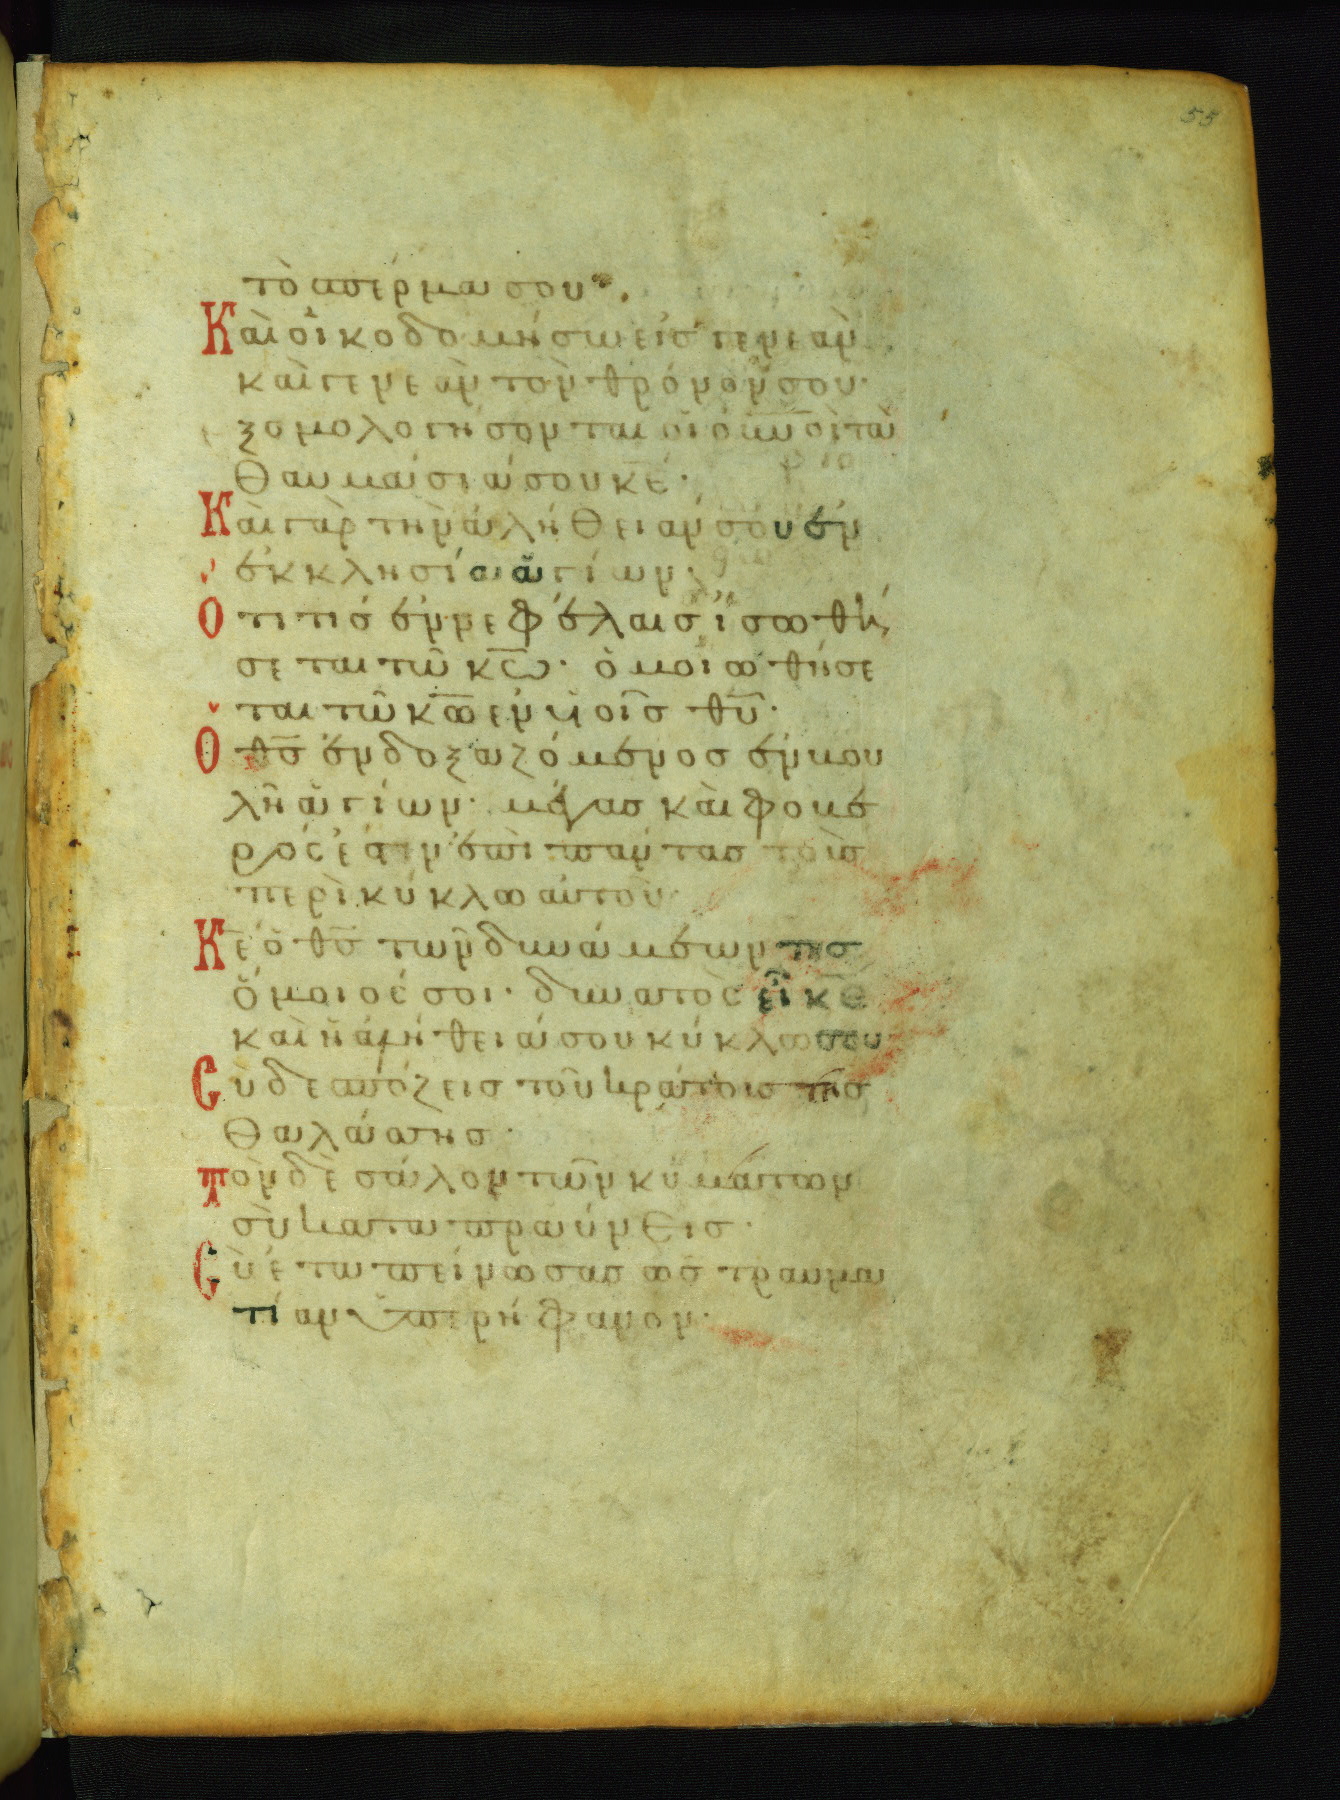 55
τὸ σπέρμα σου·
Καὶ οἰκοδομήσω εἰς γενεὰν
καὶ γενεὰν τὸν θρόνον σου·
ξομολογήσονται οἱ οὐνοὶ τὰ
θαυμάσιά σου κε·
Καὶ γὰρ τὴν ἀλήθειάν σου ἐν
ἐκκλησία ἁγίων·
Ὅτι τίς ἐν νεφέλαις ἰσωθή
σεται τῶ κω· ὁμοιωθήσε
ται τῶ κω ἐν υἱοῖς θυ·
Ὁ θς ἐνδοξαζόμενος ἐν βου
λῆ ἁγίων· μέγας καὶ φοβε
ρός ἐστιν ἐπὶ πάντας τοὺς
περὶ κύκλω αὐτοῦ
Κε ὁ θς τῶν δυνάμεων τίς
ὅμοιός σοι· δυνατὸς εἶ κε
καὶ ἡ ἀλήθειά σου κύκλω σου
Σὺ δεσπόζεις τοῦ κράτους τῆς
θαλάσσης·
Τὸν δὲ σάλον τῶν κυμάτων
σὺ καταπραύνεις·
Σὺ ἐταπείνωσας ὡς τραυμα
τίαν ὑπερήφανον·